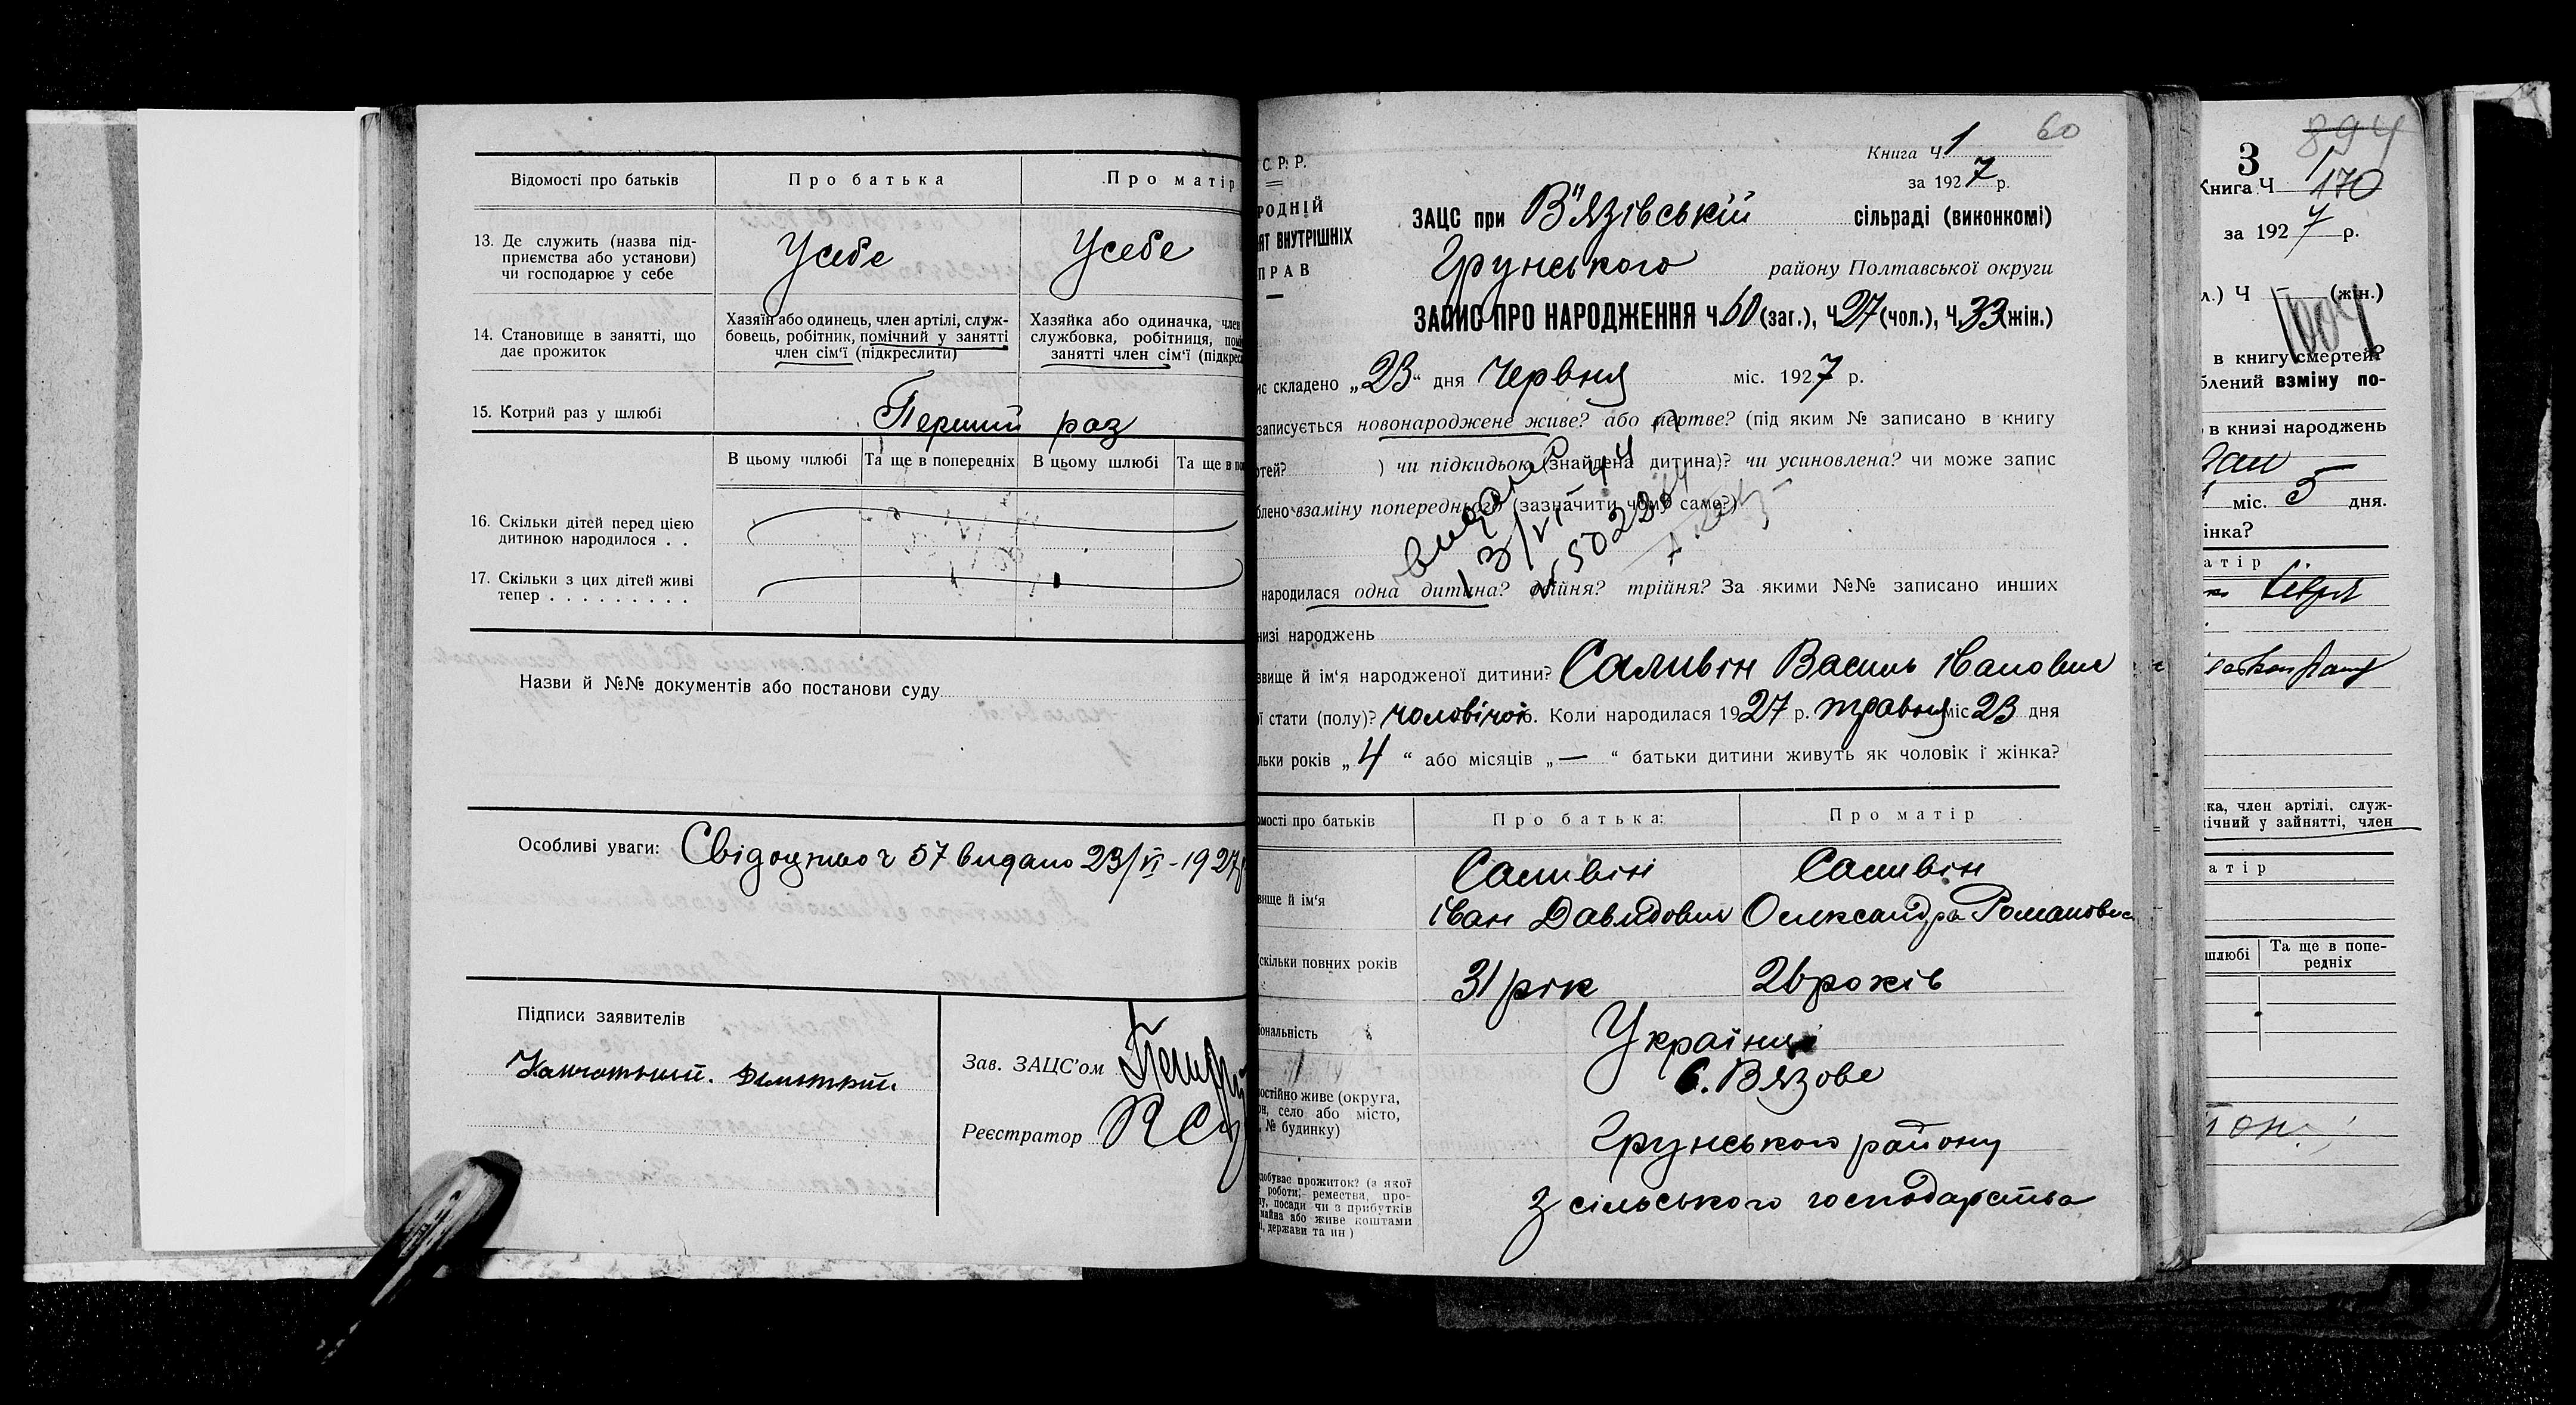 Відомості про батьків
Про батька
Про матір
13. Де служить (назва під-
приємства або установи)
чи господарює у себе
Усебе
Усебе
14. Становище в занятті, що
дає прожиток
Хазяїн або одинець, член артілі, служ-
бовець, робітник, помічний у занятті
член сім'ї (підкреслити)
Хазяйка або одиначка, член
службовка, робітниця,
занятті член сім'ї
15. Котрий раз у шлюбі
Перший раз
В цьому шлюбі
Та ще в попередніх
В цьому шлюбі
Та ще в
16. Скільки дітей перед цією
дитиною народилося . .
17. Скільки з цих дітей живі
тепер . . . . . . . . .
Назви й №№ документів або постанови суду
Особливі уваги: Свідоцтво ч 57 видано 23/VI-1927
Підписи заявителів
Зав. ЗАЦС'ом
Реєстратор
60
С. Р. Р.
Книга Ч. 1
за 1927 р.
РОДНІЙ
ВНУТРІШНІХ
ПРАВ
ЗАЦС при В"язівській сільраді (виконкомі)
Грунського району Полтавської округи
ЗАПИС ПРО НАРОДЖЕННЯ Ч. 60 (заг.), Ч. 27 (чол.), Ч. 33 (жін.)
складено „23" дня Червня міс. 1927 р.
записується новонароджене живе? або мертве? (під яким № записано в книгу
) чи підкидьок (знайдена дитина)? чи усиновлена? чи може запис
взаміну попереднього (зазначити чому саме?)
народилася одна дитина? двійня? трійня? За якими №№ записано инших
народжень
й ім'я народженої дитини? Саливін Василь Іванович
стати (полу)? чоловічої. Коли народилася 1927 р. травня міс 23 дня
років „4" або місяців „—" батьки дитини живуть як чоловік і жінка?
про батьків
Про батька:
Про матір
й ім'я
Саливін
Іван Давидович
Саливін
Олександра
скільки повних років
31 рік
26 років
Українці
с. Вязове
Грунського району
живе (округа,
село або місто,
№ будинку)
прожиток? (з якої
роботи, ремества, про-
посади чи з прибутків
майна або живе коштами
держави та ин)
з сільського господарства
894
3
Книга Ч 170
за 1927 р.
Ч (жін.)
1004
в книгу смертей?
взміну по-
в книзі народжень
міс. 5 дня.
член артілі, служ-
у зайнятті, член
шлюбі
Та ще в попе-
редніх